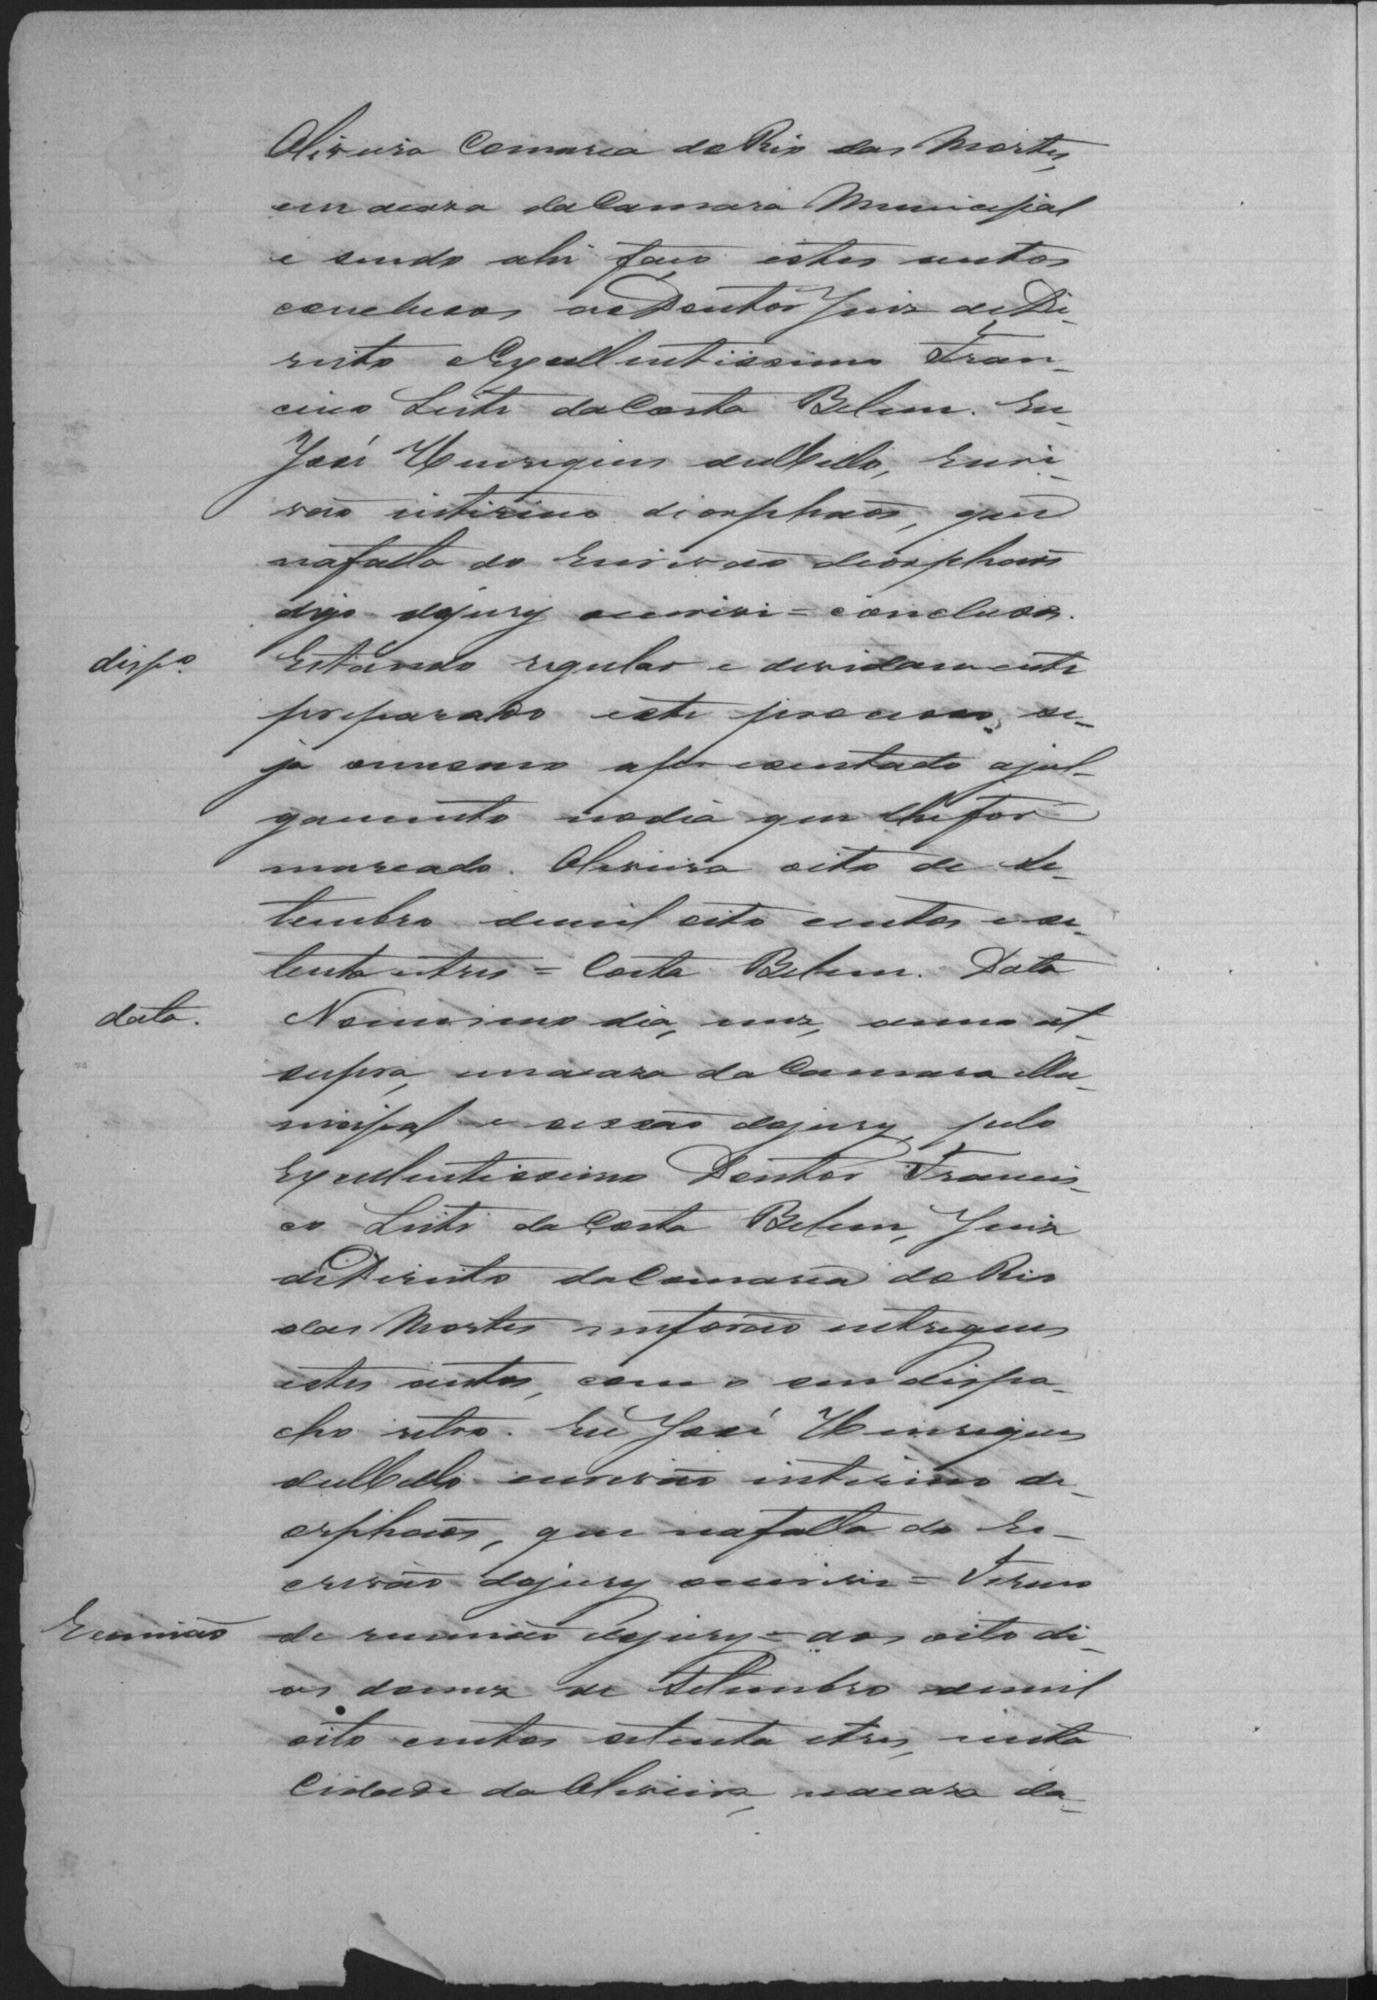 Oliveira Comarca do Rio das Mortes,
em acaza da Camara Municipal
e sendo ahi faço estes autos
conclusos ao Doutor Juiz de Di-
reito Excellentissimo Fran-
cisco Leite da Costa Belem. Eu
José Henriques de Mello, Escri-
vão interino de orphãos, que
na falta do Escrivão de orphãos
digo do jury escrivi = conclusos.
disp.o Estando regular e devidamente
preparado este processo, se-
ja o mesmo apresentado a jul-
gamento no dia que lhe for
marcado. Oliveira oito de Se-
tembro de mil oito centos e se-
tenta e tres = Costa Belem. Data
data. No mesmo dia, mez, anno ut
supra, em a caza da Camara Mu-
nicipal e sessão do jury, pelo
Excellentissimo Doutor Francis-
co Leite da Costa Belem, Juiz
de Direito da Comarca do Rio
das Mortes me forão entregues
estes autos, com o seu despa-
cho retro. Eu José Henriques
de Mello escrivão interino de
orphãos, que na falta do Es-
crivão do jury escrivi = Termo
Reunião de reunião do jury = aos oito di-
as do mez de Setembro de mil
oito centos setenta e tres, nesta
Cidade da Oliveira, na caza da